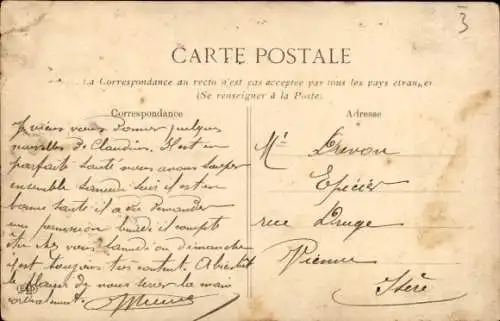 3
CARTE POSTALE
La Correspondance au recto n'est pas acceptée par tous les pays étrangers
(Se renseigner à la Poste)
Correspondance
Je viens vous donner quelques
nouvelles de Claudius. Il est en
parfait santé nous avons souper
ensemble samedi soir il est en
bonne santé il a du demander
une permission lundi il compte
être chez vous samedi ou dimanche
il est toujours très content. A bientôt
le plaisir de vous serrer la main
cordialement
Adresse
Mr
Epicier
rue
Vienne
Isère